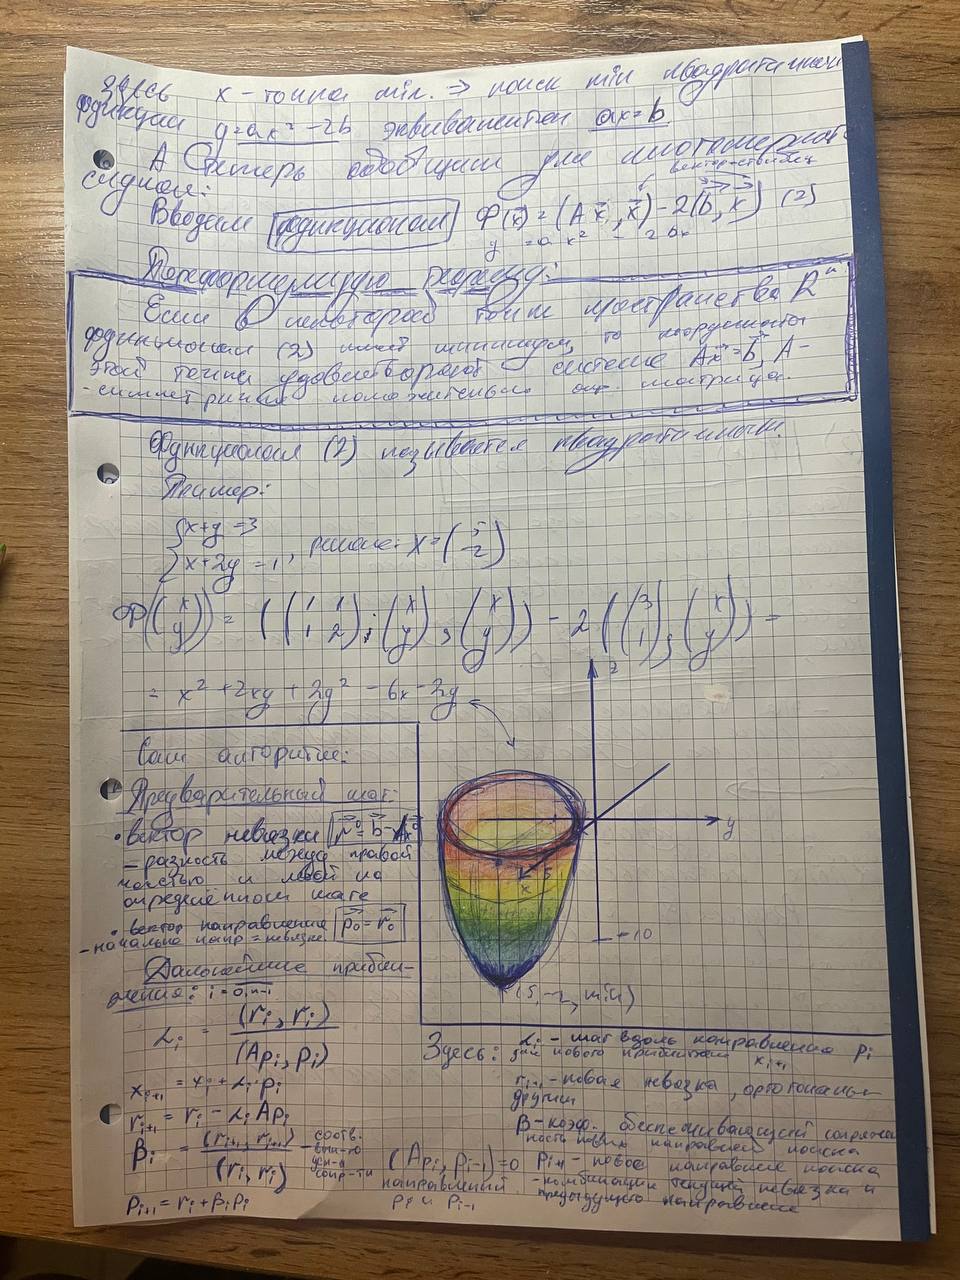 Здесь x - точка min. ⇒ поиск min квадратичной
функции y=ax² - 2b эквивалентен ax=b
А теперь обобщим для многомерного
вектор-столбец
случая:
Вводим функционал Ф(x⃗) = (Ax⃗, x⃗) - 2(b⃗, x⃗) (2)
y = a x² - 2bx
Переформулирую теорему:
Если в некоторой точке пространства Rⁿ
функционал (2) имеет минимум, то координаты
этой точки удовлетворяют системе Ax⃗=b⃗, A -
- симметричная положительно опр. матрица.
Функционал (2) называется квадратичным.
Пример:
{x+y=3
{x+2y=1, решение: X=(5 -2)
Ф((x y)) = ((1 1 1 2)·(x y), (x y)) - 2((3 1), (x y)) =
= x² + 2xy + 2y² - 6x - 2y
z
y
x
5
-10
(5, -2, min)
Сам алгоритм:
Предварительный шаг:
• вектор невязки r⃗⁰ = b⃗ - Ax⃗⁰
- разность между правой
частью и левой на
определённом шаге
• вектор направления p⃗₀ = r⃗₀
- начальное напр = невязке
Дальнейшие прибли-
жения: i = 0, n-1
αᵢ = (rᵢ, rᵢ) / (Apᵢ, pᵢ)
xᵢ₊₁ = xᵢ + αᵢ·pᵢ
rᵢ₊₁ = rᵢ - αᵢ Apᵢ
βᵢ = (rᵢ₊₁, rᵢ₊₁) / (rᵢ, rᵢ) - соотв.
сопр-ти
(Apᵢ, pᵢ₋₁) = 0
направлений
pᵢ и pᵢ₋₁
pᵢ₊₁ = rᵢ + βᵢ pᵢ
Здесь: αᵢ - шаг вдоль направления pᵢ
для нового приближения xᵢ₊₁
rᵢ₊₁ - новая невязка, ортогональн
другим
β - коэф. обеспечивающий сопряжен
ность новых направлений поиска
pᵢ₊₁ - новое направление поиска
- комбинация текущей невязки и
предыдущего направления